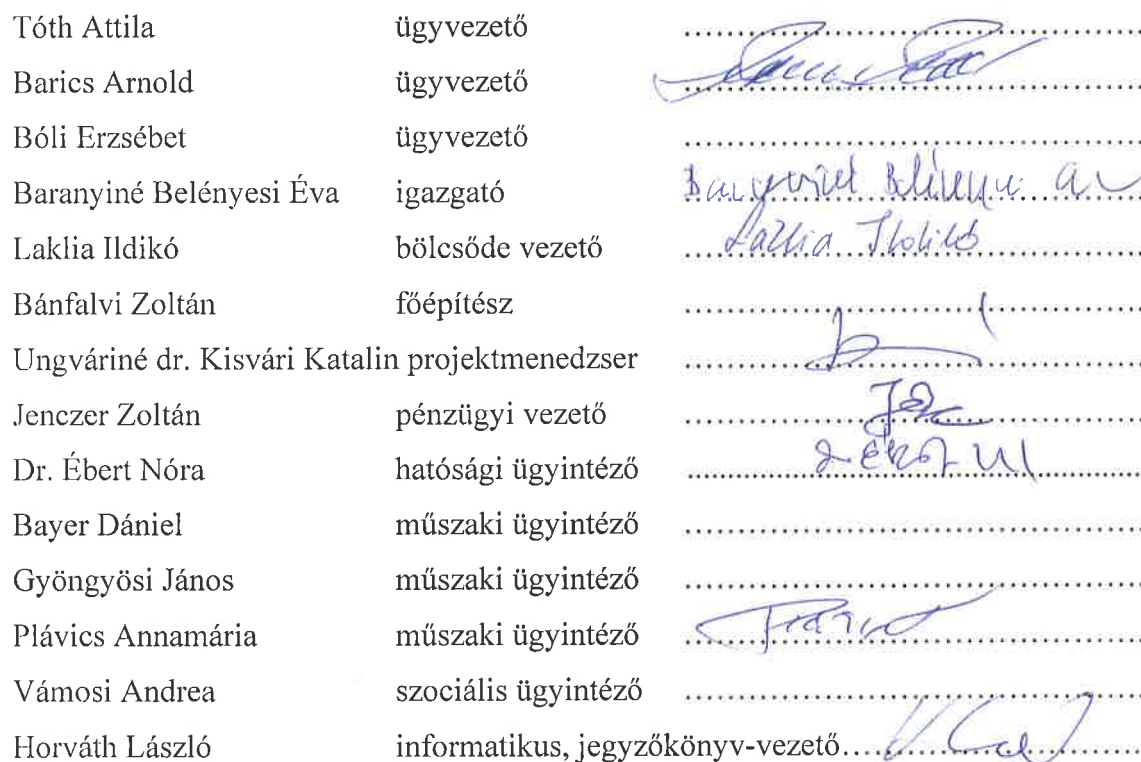 Tóth Attila ügyvezető ........................................
Barics Arnold ügyvezető ........................................
Bóli Erzsébet ügyvezető ........................................
Baranyiné Belényesi Éva igazgató ........................................
Laklia Ildikó bölcsőde vezető Laklia Ildikó
Bánfalvi Zoltán főépítész ........................................
Ungváriné dr. Kisvári Katalin projektmenedzser ........................................
Jenczer Zoltán pénzügyi vezető ........................................
Dr. Ébert Nóra hatósági ügyintéző ........................................
Bayer Dániel műszaki ügyintéző ........................................
Gyöngyösi János műszaki ügyintéző ........................................
Plávics Annamária műszaki ügyintéző ........................................
Vámosi Andrea szociális ügyintéző ........................................
Horváth László informatikus, jegyzőkönyv-vezető........................